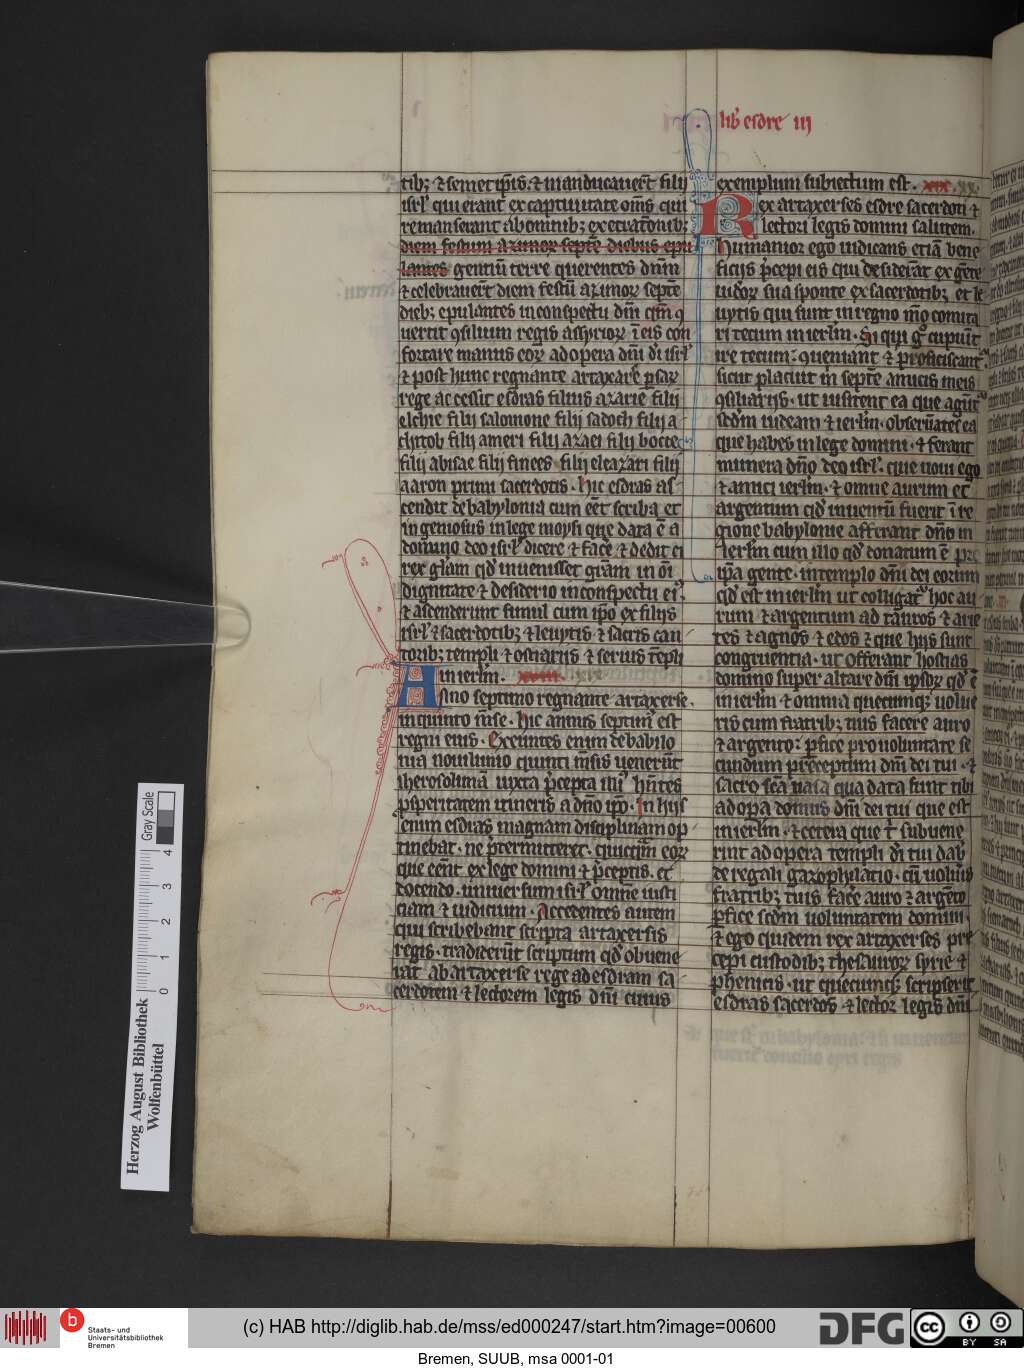 lib esdre iij
tib; ⁊ semetip̄is. ⁊ manducauer̄t filij
isrl' qui erant ex captiuitate om̄s qui
remanserant abomīnib; execrat̄onib;
diem festum azimoꝝ septē diebus epu
lantes gentiū terre querentes dn̄m
⁊ celebrauer̄t diem festū azimoꝝ septē
dieb; epulantes in conspectu dn̄i qm̄ ꝯ
uertit ꝯsilium regis assyrioꝝ ī eis con
fortare manus eoꝝ ad opera dn̄i di isrl'
⁊ post hunc regnante artaxarē psaꝝ
rege accessit esdras filius azarie filij
elchie filij salomone filij sadoch filij a
chitob filij ameri filij azaei filij bocce
filij abisae filij finees filij eleazari filij
aaron primi sacerdotis. hic esdras as
cendit de babylonia cum eēt scriba et
ingeniosus in lege moysi que data ē a
domino deo isrl' dicere ⁊ facē ⁊ dedit ei
rex glam qd' inuenisset grām in oī
dignitate ⁊ desiderio in conspectu ei'
⁊ ascenderunt simul cum ipo ex filijs
isrl' ⁊ sacerdotib; ⁊ leuytis ⁊ sacris can
torib; templi ⁊ ostiarijs ⁊ seruis tēpli
in ierlm̄. xviii.
Anno septimo regnante artaxerse.
in quinto mēse. hic annus septim' est
regni eius. Exeuntes enim de babilo
nia nouilunio quinti mēsis uenerūt
iherosolimā iuxta p̄cepta illi' hn̄tes
pspitatem itineris a dn̄o ipo. In hijs
enim esdras magnam disciplinam op
tinebat. ne p̄termitteret. quicq̄m eoꝝ
que eēnt ex lege domini ⁊ p̄ceptis. et
docendo. uniuersum isrl' omnē iusti
ciam ⁊ iudicium. Accedentes autem
qui scribebant scripta artaxersis
regis. tradider̄t scriptum qd' obuene
rat ab artaxerse rege ad esdram sa
cerdotem ⁊ lectorem legis dn̄i cuius
exemplum subiectum est. xix. xx
Rex artaxerses esdre sacerdoti ⁊
lectori legis domini salutem.
Humanior ego iudicans etiā bene
ficijs p̄cepi eis qui desiderāt ex gēte
iudoꝝ sua sponte ex sacerdotib; et le
uytis qui sunt in regno mō comita
ri tecum in ierlm̄. Si qui g° cupiūt
ire tecum: ꝯueniant ⁊ proficiscant'
sicut placuit m̄ septē amicis meis
ꝯsiliarijs. ut uisitent ea que agūt'
scdm iudeam ⁊ ierlm̄. obseruātes ea
que habes in lege domini. ⁊ ferant
munera dn̄o deo isrl'. que noui ego
⁊ amici ierlm̄. ⁊ omne aurum et
argentum qd' inuentū fuerit ī re
gione babylonie afferant dn̄o in
ierlm̄ cum illo qd' donatum ē pro
ipa gente. in templo dn̄i dei eorum
qd' est in ierlm̄ ut colligat' hoc au
rum ⁊ argentum ad tauros ⁊ arie
tes ⁊ agnos ⁊ edos ⁊ que hijs sunt
congruentia. ut offerant hostias
domino super altare dn̄i ipsoꝝ qd' ē
in ierlm̄ ⁊ omnia quecumq; uolue
ris cum fratrib; tuis facere auro
⁊ argento: pfice pro uoluntate se
cundum preceptum dn̄i dei tui. ⁊
sacro scā uasa qua data sunt tibi
ad opa domus dn̄i dei tui que est
in ierlm̄. ⁊ cetera que t' subuene
rint ad opera templi di tui dab
de regali gazophylatio. cū uolūis
fratrib; tuis facē auro ⁊ argēto
pfice scdm uoluntatem domini.
⁊ ego quidem rex artaxerses pre
cepi custodib; thesauroꝝ syrie ⁊
phenicis. ut quecumq; scripserit
esdras sacerdos. ⁊ lector legis dn̄i
Gray Scale
0 1 2 3 4
Herzog August Bibliothek
Wolfenbüttel
b Staats- und
Universitätsbibliothek
Bremen
(c) HAB http://diglib.hab.de/mss/ed000247/start.htm?image=00600
DFG
cc BY SA
Bremen, SUUB, msa 0001-01